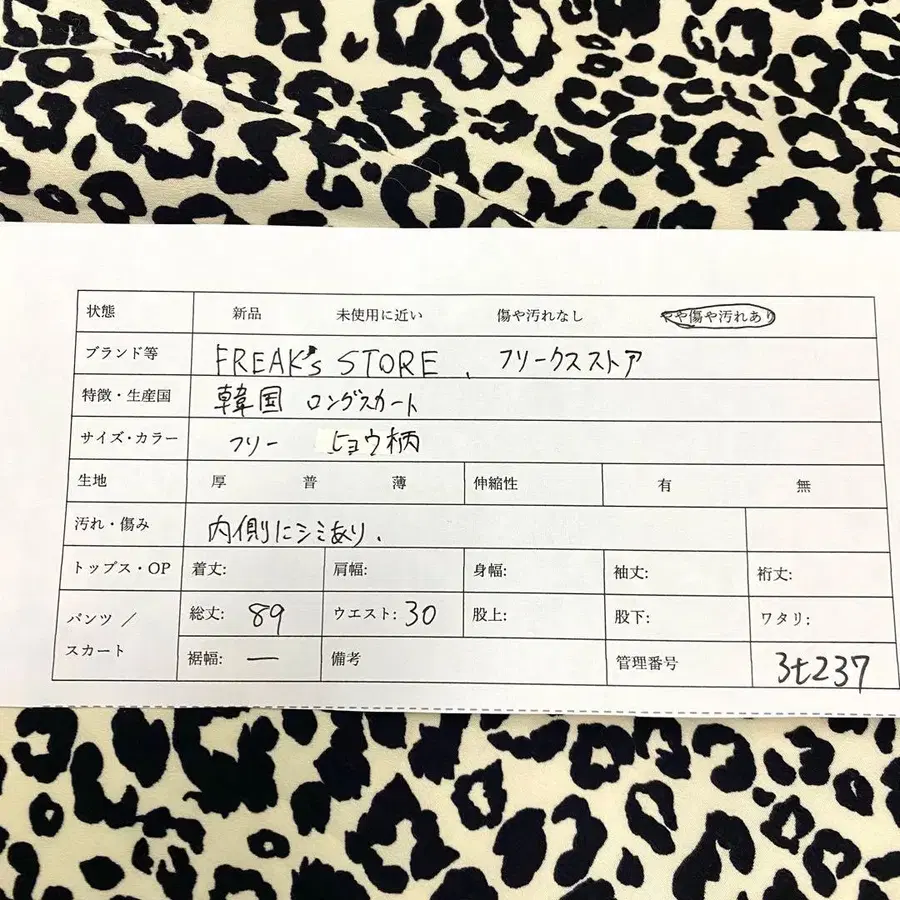 状態 新品 未使用に近い 傷や汚れなし やや傷や汚れあり
ブランド等 FREAK's STORE、フリークスストア
特徴・生産国 韓国 ロングスカート
サイズ・カラー フリー ヒョウ柄
生地 厚 普 薄 伸縮性 有 無
汚れ・傷み 内側にシミあり.
トップス・OP 着丈: 肩幅: 身幅: 袖丈: 裄丈:
パンツ / スカート 総丈: 89 ウエスト: 30 股上: 股下: ワタリ:
裾幅: ー 備考 管理番号 3t237